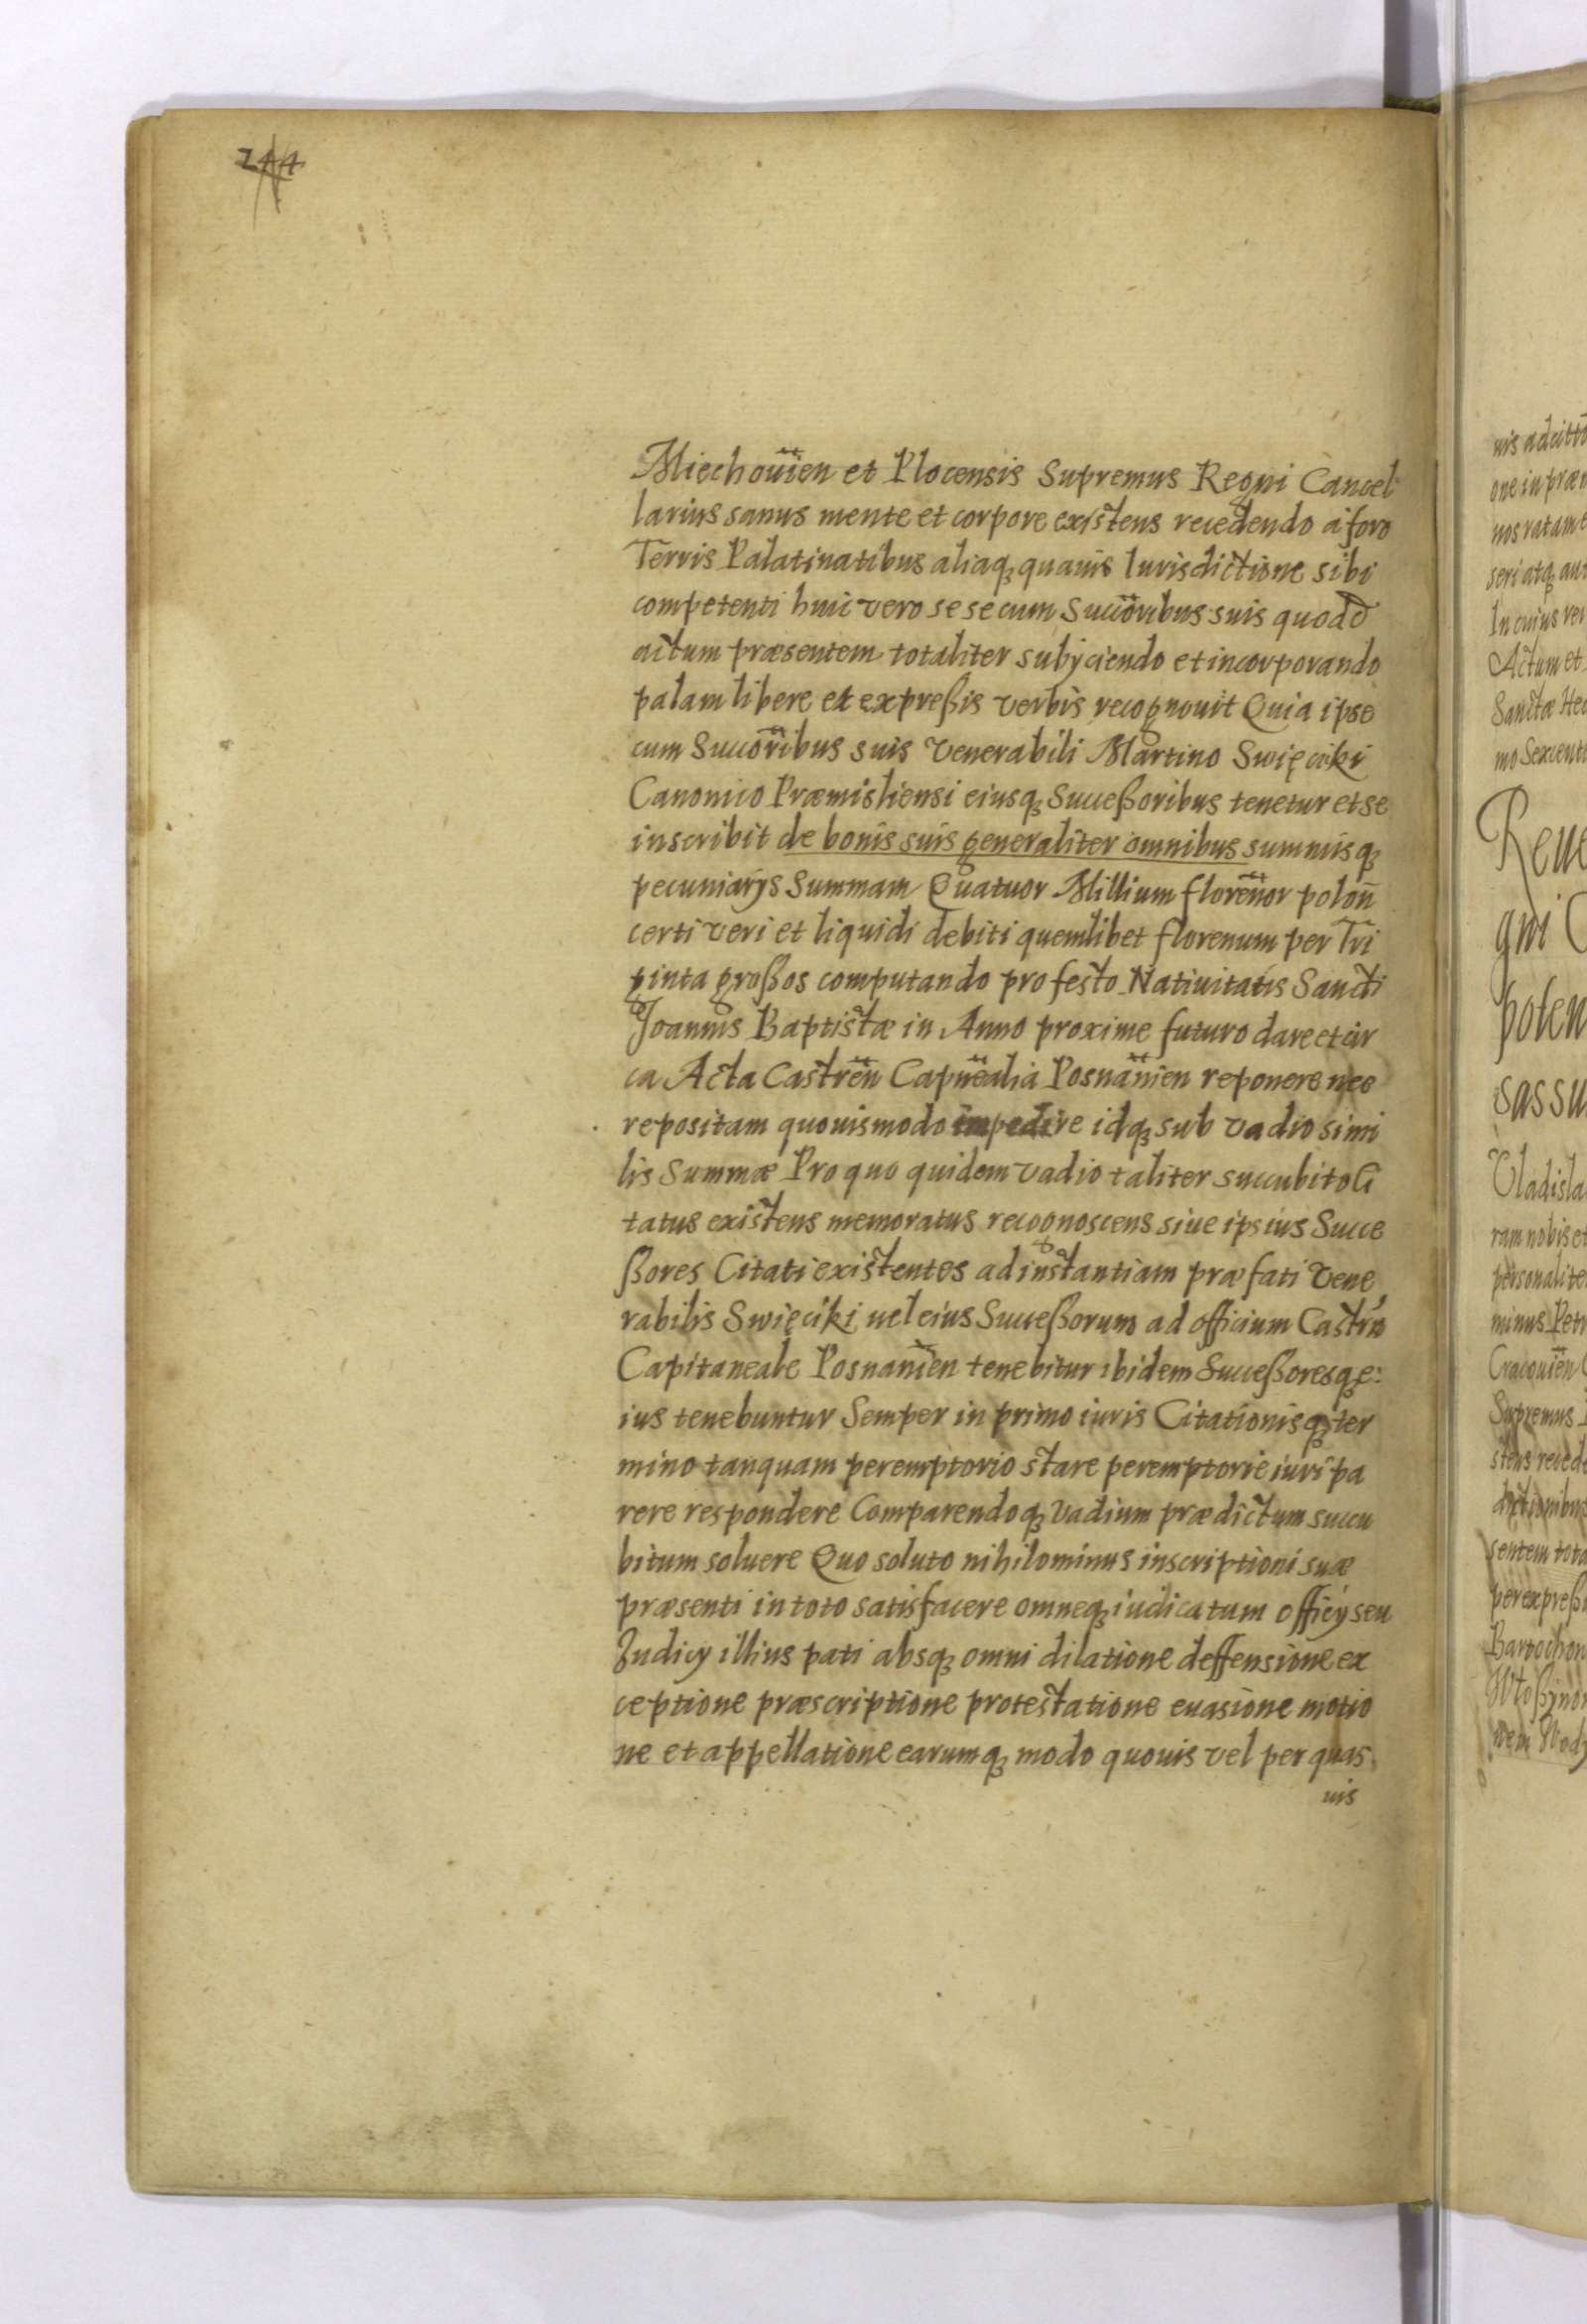 Miechouien et Plocensis Supremus Regni Cancel
larius sanus mente et corpore existens recedendo a foro
Terris Palatinatibus aliaq quauis Iurisdictione sibi
competenti huic vero se se cum Succoribus suis quod
actum præsentem totaliter subijciendo et incorporando
palam libere et expreßis verbis recognouit Quia ipse
cum Succoribus suis Venerabili Martino Swięciki
Canonico Præmisliensi eiusq Succeßoribus tenetur et se
inscribit de bonis suis generaliter omnibus summisq
pecuniarijs Summam Quatuor Millium florenor polon
certi veri et liquidi debiti quemlibet florenum per Tri
ginta großos computando pro festo Natiuitatis Sancti
Joannis Baptistæ in Anno proxime futuro dare et cir
ca Acta Castren Capnealia Posnanien reponere nec
repositam quouismodo impedire idq sub vadio simi
lis Summæ Pro quo quidem vadio taliter succubito Ci
tatus existens memoratus recognoscens siue ipsius Succe
ßores Citati existentes ad instantiam præfati Vene
rabilis Swięciki uel eius Succeßorum ad officium Castrn
Capitaneale Posnanien tenebitur ibidem Succeßoresq e:
ius tenebuntur Semper in primo iuris Citationisq ter
mino tanquam peremptorio stare peremptorie iuri pa
rere respondere Comparendoq vadium prædictum succu
bitum soluere Quo soluto nihilominus inscriptioni suæ
præsenti in toto satisfacere omneq iudicatum officij seu
Judicij illius pati absq omni dilatione deffensione ex
ceptione præscriptione protestatione euasione motio
ne et appellatione earumq modo quouis vel per quas
uis
nis adcitto
nos ratam e
seri atq au
In cuius rei
Actum et
Sanctæ Hed
mo Sexcento
Reue
gni C
poten
sassu
Vladisla
ram nobis et
personalite
minus Petr
Cracouien
Supremus
stens recede
dictionibus
sentem tota
per expreßi